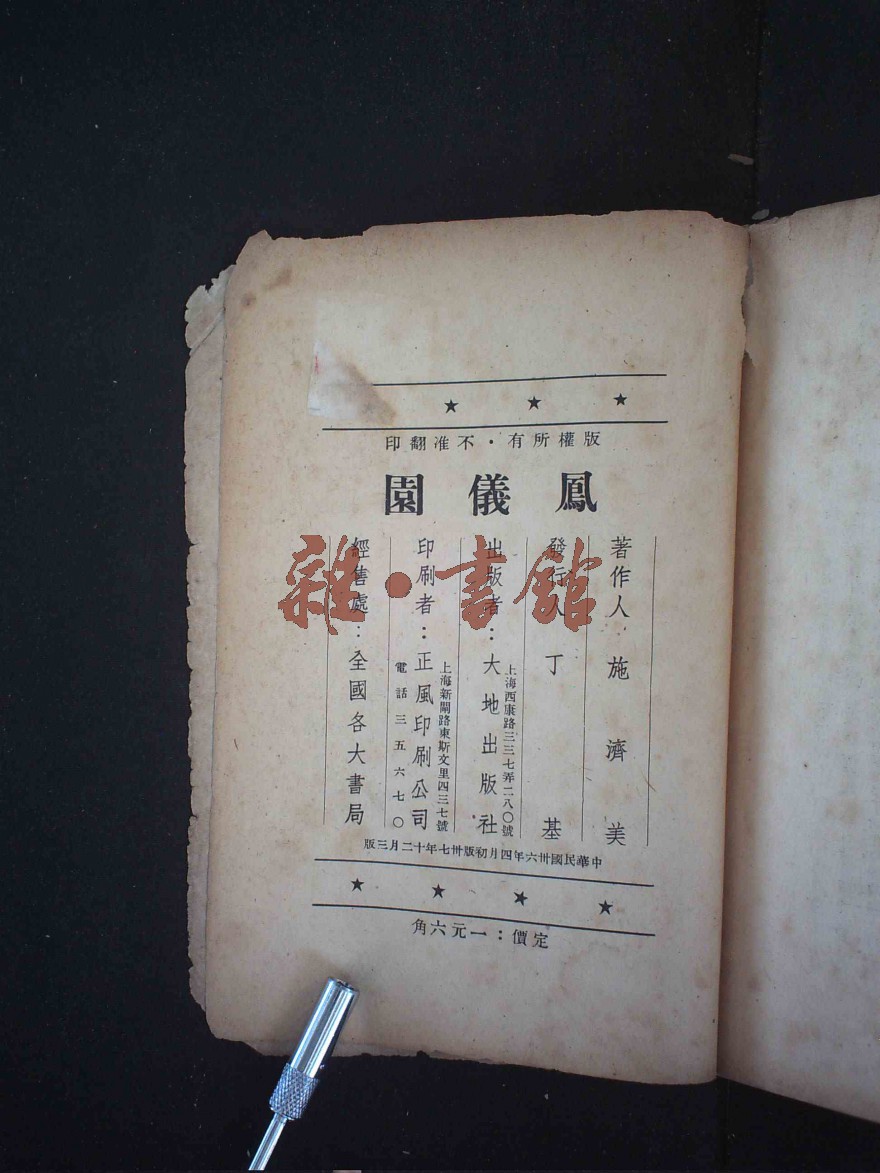 版權所有・不准翻印
鳳儀園
著作人：施濟美
發行人 丁基
出版者：大地出版社
上海西康路三三七弄二八〇號
印刷者：正風印刷公司
上海新閘路東斯文里四三七號
電話三五六七〇
經售處：全國各大書局
中華民國卅六年四月初版卅七年十二月三版
定價：一元六角
雜・書館